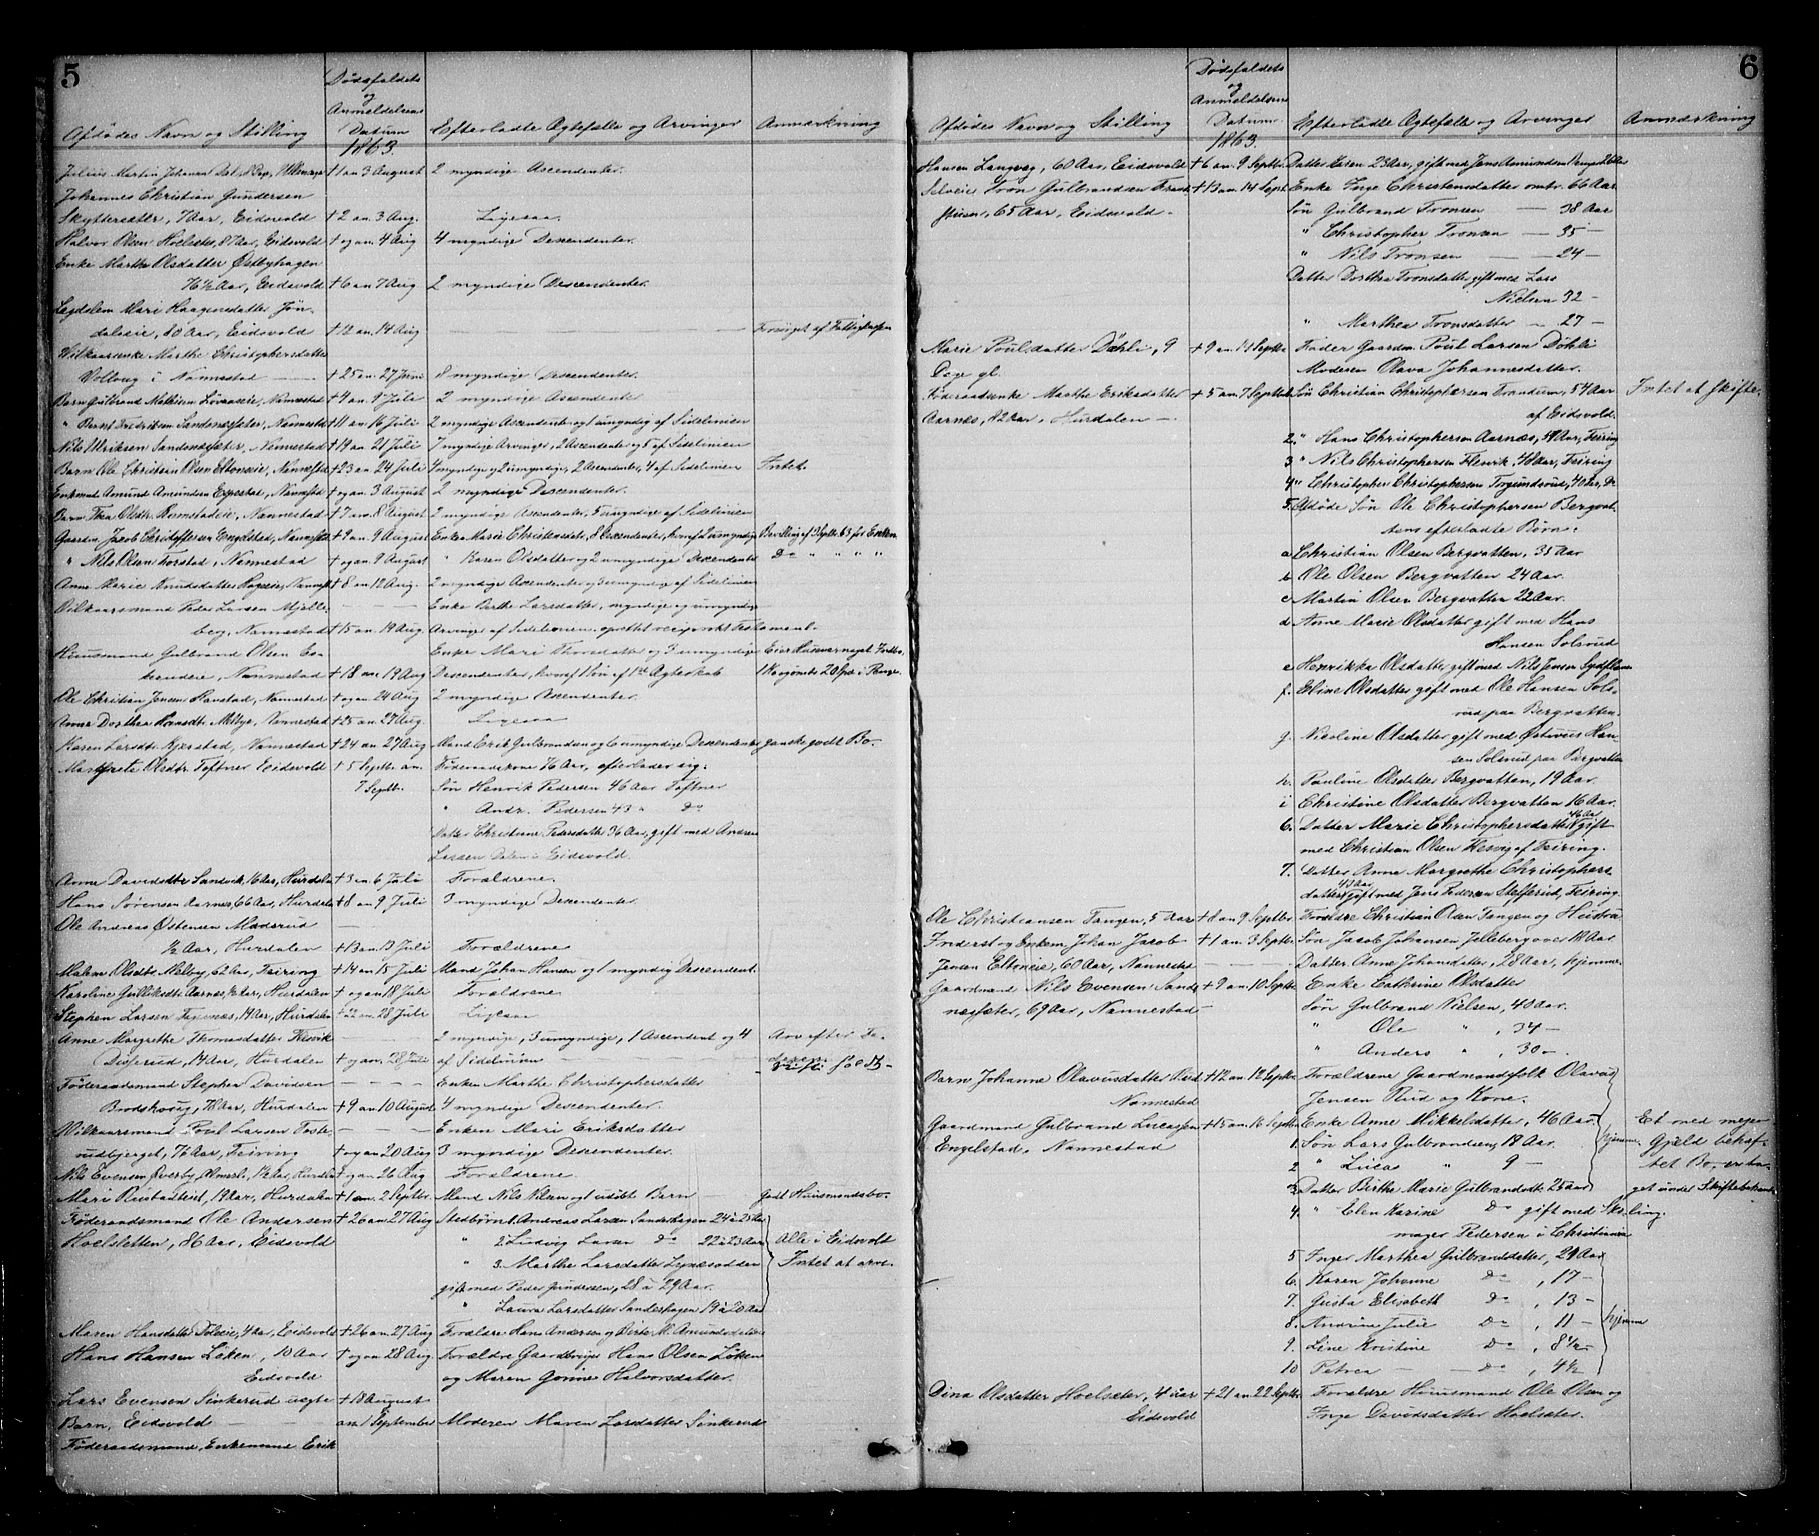 5
Dødsfaldets
og
Anmeldelsens
Datum
Afdødes Navn og Stilling
Efterladte Ægtefælle og Arvinger
Anmærkning
1863.
Julius Martin Johansen † 1 an 3 August 2 myndige Ascendenter.
Johannes Christian Gundersen
Skyttersæter, 7 Aar, Eidsvold † 2 an. 3 Aug. Ligesaa.
Halvor Olsen Hoelsæter, 87 Aar, Eidsvold † og an. 4 Aug 4 myndige Descendenter.
Enke Marthe Olsdatter Østbyhagen
76½ Aar, Eidsvold † 6 an 7 Aug 2 myndige Descendenter.
Legdslem Mari Haagensdatter Jøn-
dalseie, 80 Aar, Eidsvold † 12 an. 14 Aug Forsørget af Fattigkassen
Vilkaarsenke Marthe Christophersdatter
Vollaug i Nannestad † 25 an. 27 Juni 8 myndige Descendenter.
Barn Gulbrand Mathisen Løvaaseie, Nannestad † 4 an. 9 Juli 2 myndige Ascendenter
" Bernt Fredriksen Sandsnesseter, Nannestad † 11 an 16 Juli 2 myndige Ascendenter og 1 umyndig af Sidelinien
Nils Ulriksen Sandsnesseter, Nannestad † 19 an 21 Juli 7 myndige Arvinger, 2 Ascendenter og 5 af Sidelinien
Barn Ole Christian Olsen Eltoneie, Nannestad † 23 an 24 Juli 4 myndige og 2 umyndige, 2 Ascendenter, 4 af Sidelinien Intet.
Enkemd Amund Amundsen Eggestad, Nannestd † og an. 3 August 2 myndige Descendenter.
Barn Thea Olsdtr. Remstadeie, Nannestad † 7 an 8 August 2 myndige Ascendenter, 5 umyndige af Sidelinien
Gaardm. Jacob Christoffersen Engelstad, Nannestd † 9 an. 9 August Enken Marie Christensdatr, 8 Descendenter, hvoraf 2 umyndige Bevilling af 3 Septbr. 63 for Enken
" Nils Olsen Torstad, Nannestad † og an 9 August " Karen Olsdatter og 2 umyndige Descendenter Do " " " "
Anne Marie Knudsdatter Hageeie, Nannestd † 8 an 12 Aug. 2 myndige Ascendenter og 3 umyndig af Sidelinien
Vilkaarsmand Peder Larsen Mjelle-
berg, Nannestad † 15 an. 19 Aug. Enke Berthe Larsdatter, myndige og umyndige
Arvinger af Sidelinien. oprettet reciprokt Testament.
Huusmand Gulbrand Olsen Es-
kendere, Nannestad † 18 an. 19 Aug Enke Mari Thoresdatter og 3 umyndige
Descendenter, hvoraf 1 Søn af 1ste Ægteskab
Ole Christian Jensen Haustad, Nannestad † og an 24 Aug 2 myndige Ascendenter.
Anne Dorthea Hansdtr. Melbye, Nannestad † 25 an. 27 Aug. Ligesaa
Karen Larsdtr. Kjerstad, Nannestad † 24 an 27 Aug Mand Erik Gulbrandsen og 6 umyndige Descendenter ganske godt Bo.
Margrete Olsdtr. Toftner Eidsvold † 5 Septbr. an. 7 Septb. Føderaadskone 76 Aar, efterlader sig:
Søn Henrik Pedersen 46 Aar Toftner
" Andr. Pedersen 43 " Do
Datter Christiane Pedersdatter 36 Aar, gift med Andreas
Larsen Dalen i Eidsvold.
Anne Davidsdtr Sandvik, 16 Aar, Hurdalen † 3 an 6 Juli Forældrene.
Hans Sørensen Aarnæs, 66 Aar, Hurdalen † 8 an 9 Juli 3 myndige Descendenter.
Ole Andreas Østensen Maderud
½ Aar, Hurdalen † 13 an 13 Juli Forældrene
Malene Olsdtr. Melby, 62 Aar, Feiring † 14 an 15 Juli Mand Johan Hansen og 1 myndig Descendent.
Karoline Gulliksdtr Aarnæs, ½ Aar, Hurdalen † og an 18 Juli Forældrene
Stephen Larsen Tagenæs, 14 Aar, Hurdalen † 22 an. 28 Juli Ligesaa
Anne Margrethe Thomasdatter Hesvik
Duserud, 14 Aar, Hurdalen † og an. 28 Juli 2 myndige, 3 umyndige, 1 Ascendent og 4
af Sidelinien Arv efter Fa-
deren
Føderaadsmand Stephen Davidsen
Brodskoug, 78 Aar, Hurdalen † 9 an. 10 August Enken Marthe Christophersdatter
4 myndige Descendenter.
Vilkaarsmand Poul Larsen Teste-
rudbjerget, 76 Aar, Feiring † og an 20 Aug Enken Mari Eriksdatter
3 myndige Descendenter.
Nils Evensen Øverby Almsli, ½ Aar, Hurdalen † og an 26 Aug Forældrene
Mari Rustadeiet, 19 Aar, Hurdalen † 1 an. 2 Septbr. Mand Nils Nilsen og 1 udøbt Barn godt Huusmandsbo.
Føderaadsmand Ole Andersen
Hoelsletten, 86 Aar, Eidsvold † 26 an 27 Aug Stedbørn 1. Andreas Larsen Sanderhagen 24 à 25 Aar
" 2. Ludvig Larsen Do 22 à 23 Aar Alle i Eidsvold
" 3. Marthe Larsdatter Lynæsodden Intet at arve.
gift med Peder Gundersen, 28 à 29 Aar.
" Laura Larsdatter Sanderhagen 19 à 20 Aar
Maren Hansdatter Toldeie, 4 Aar, Eidsvold † 26 an. 27 Aug Forældre Hans Andersen og Birthe M. Amundsdatter
Hans Hansen Løken, 10 Aar
Eidsvold † og an 28 Aug. Forældre Gaardbruger Hans Olsen Løken
og Maren Gorine Halvorsdatter.
Lars Evensen Sinkerud uægte
Barn, Eidsvold † 18 August
an 1 September Moderen Maren Larsdatter Sinkerud
Føderaadsmand, Enkemand Erik
6
Dødsfaldets
og
Anmeldelsens
Datum
Afdødes Navn og Stilling
Efterladte Ægtefælle og Arvinger
Anmærkning
1863.
Hansen Langvag, 60 Aar, Eidsvold † 6 an. 9 Septbr. Datter Karen 23 Aar, gift med Jens Amundsen
Selveier Tron Gulbrandsen
65 Aar, Eidsvold † 13 an. 14 Sept. Enke Inge Christensdatter omtr. 66 Aar
Søn Gulbrand Tronsen 38 Aar
" Christopher Tronsen 35
" Nils Tronsen 24
Datter Dorthea Tronsdatter gift med Lars
Nielsen 32
" Marthea Tronsdatter 27
Marie Poulsdatter Døhli, 9
Dage gl. † 9 an. 11 Septbr Fader Gaardm. Poul Larsen Døhli
Moderen Olava Johannesdatter.
Føderaadsenke Marthe Eriksdatter
Aarnæs, 82 Aar, Hurdalen † 5 an. 7 Septbr. Søn Christian Christophersen Trandum, 54 Aar Intet at skifte.
af Eidsvold.
2. " Hans Christophersen Aarnæs, Feiring
3 " Nils Christophersen Hesvik, 48 Aar, Feiring
4 " Christopher Christophersen 40 Aar, Do
5. Afdøde Søn Ole Christophersen Bergvat-
tens efterladte Børn:
a Christian Olsen Bergvatten, 35 Aar
b Ole Olsen Bergvatten 24 Aar.
c Martin Olsen Bergvatten 22 Aar.
d Anne Marie Olsdatter gift med Hans
Hansen Solsrud
e Henrikke Olsdatter, gift med Nils Jensen
f. Eline Olsdatter gift med Ole Hansen Sols-
rud paa Bergvatten.
g. Nicoline Olsdatter gift med Østinius Han-
sen Solsrud paa Bergvatten
h. Pauline Olsdatter Bergvatten, 19 Aar.
i Christine Olsdatter Bergvatten 16 Aar.
6. Datter Marie Christophersdatter 46 Aar gift
med Christian Olsen Hesvig af Feiring.
7. Datter Anne Margrethe Christophers-
datter 43 Aar gift med Jens Pedersen Steffesrud, Feiring.
Ole Christiansen Tangen, 5 Aar † 8 an 9 Septbr. Forældre Christian Olsen Tangen og Hustru
Inderst og Enkem. Johan Jacob
Jensen Eltoneie, 60 Aar, Nannestad † 1 an. 3 Septbr. Søn Jacob Johansen Jelleberg over 18 Aar
Datter Anne Johansdatter, 28 Aar, hjemme.
Gaardmand Nils Evensen Sands-
nesseter, 69 Aar, Nannestad † 9 an. 10 Septbr Enke Cathrine Olsdatter
Søn Gulbrand Nielsen, 40 Aar.
" Ole " , 34
" Anders " , 30
Barn Johanne Olavusdatter Rud
Nannestad † 12 an. 12 Septbr Forældrene Gaardmandsfolk Olavus
Jensen Rud og Kone.
Gaardmand Gulbrand Lucassen
Engelstad, Nannestad † 15 an. 16 Septbr Enke Anne Mikkelsdatter, 46 Aar Et med megen
1. Søn Lars Gulbrandsen, 18 Aar. hjemme. Gjæld behef-
2 " Lucas " 9 tet Bo, er ta-
3. Datter Birthe Marie Gulbrandsdtr. 25 Aar get under Skiftebehand-
4. " Elen Karine Do gift med Sko- ling.
mager Pedersen i Christiania
5 Inger Marthea Gulbrandsdatter, 24 Aar
6. Karen Johanne Do , 17
7. Gusta Elisabeth Do , 13
8. Andrine Julie Do , 11 hjemme
9. Line Kristine Do , 8½
10 Petrea Do , 4½
Dina Olsdatter Hoelsæter, 4 Aar
Eidsvold † 21 an. 22 Septbr Forældre Huusmand Ole Olsen og
Inge Davidsdatter Hoelsæter.